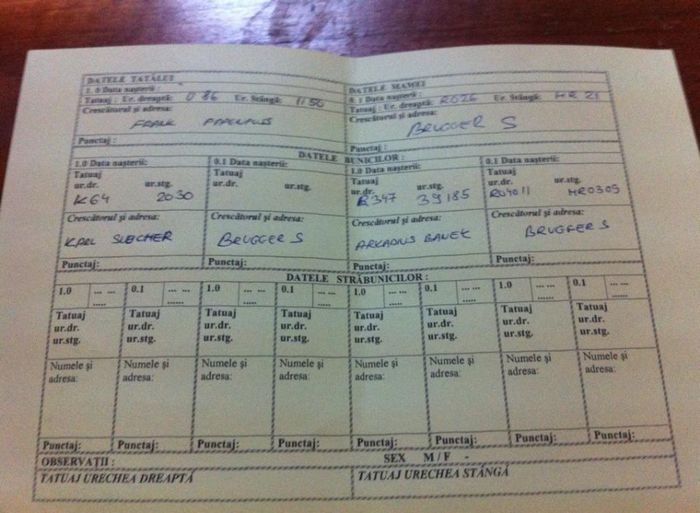 DATELE TATĂLUI
1. 0 Data nașterii :
Tatuaj : Ur. dreaptă: U 86 Ur. Stângă: 1150
Crescătorul și adresa:
FRANK
Punctaj :
DATELE MAMEI
0. 1 Data nașterii :
Tatuaj : Ur. dreaptă: R026 Ur. Stângă: HR 21
Crescătorul și adresa:
BRUGGER S
Punctaj :
DATELE BUNICILOR :
1.0 Data nașterii: 0.1 Data nașterii: 1.0 Data nașterii: 0.1 Data nașterii:
Tatuaj Tatuaj Tatuaj Tatuaj
ur.dr. ur.stg. ur.dr. ur.stg. ur.dr. ur.stg. ur.dr. ur.stg.
K64 2030 R347 39185 R04011 HR0305
Crescătorul și adresa: Crescătorul și adresa: Crescătorul și adresa: Crescătorul și adresa:
KARL BRUGGER S ARKADIUS BRUGGER S
Punctaj: Punctaj: Punctaj: Punctaj:
DATELE STRĂBUNICILOR :
1.0 ... ... 0.1 ... ... 1.0 ... ... 0.1 ... ... 1.0 ... ... 0.1 ... ... 1.0 ... ... 0.1 ... ...
..... ...... ...... ...... ..... ...... ...... ......
Tatuaj Tatuaj Tatuaj Tatuaj Tatuaj Tatuaj Tatuaj Tatuaj
ur.dr. ur.dr. ur.dr. ur.dr. ur.dr. ur.dr. ur.dr. ur.dr.
ur.stg. ur.stg. ur.stg. ur.stg. ur.stg. ur.stg. ur.stg. ur.stg.
Numele și Numele și Numele și Numele și Numele și Numele și Numele și Numele și
adresa: adresa: adresa: adresa: adresa: adresa: adresa: adresa:
Punctaj: Punctaj: Punctaj: Punctaj: Punctaj: Punctaj: Punctaj: Punctaj:
OBSERVAȚII : SEX M / F -
TATUAJ URECHEA DREAPTĂ TATUAJ URECHEA STÂNGĂ